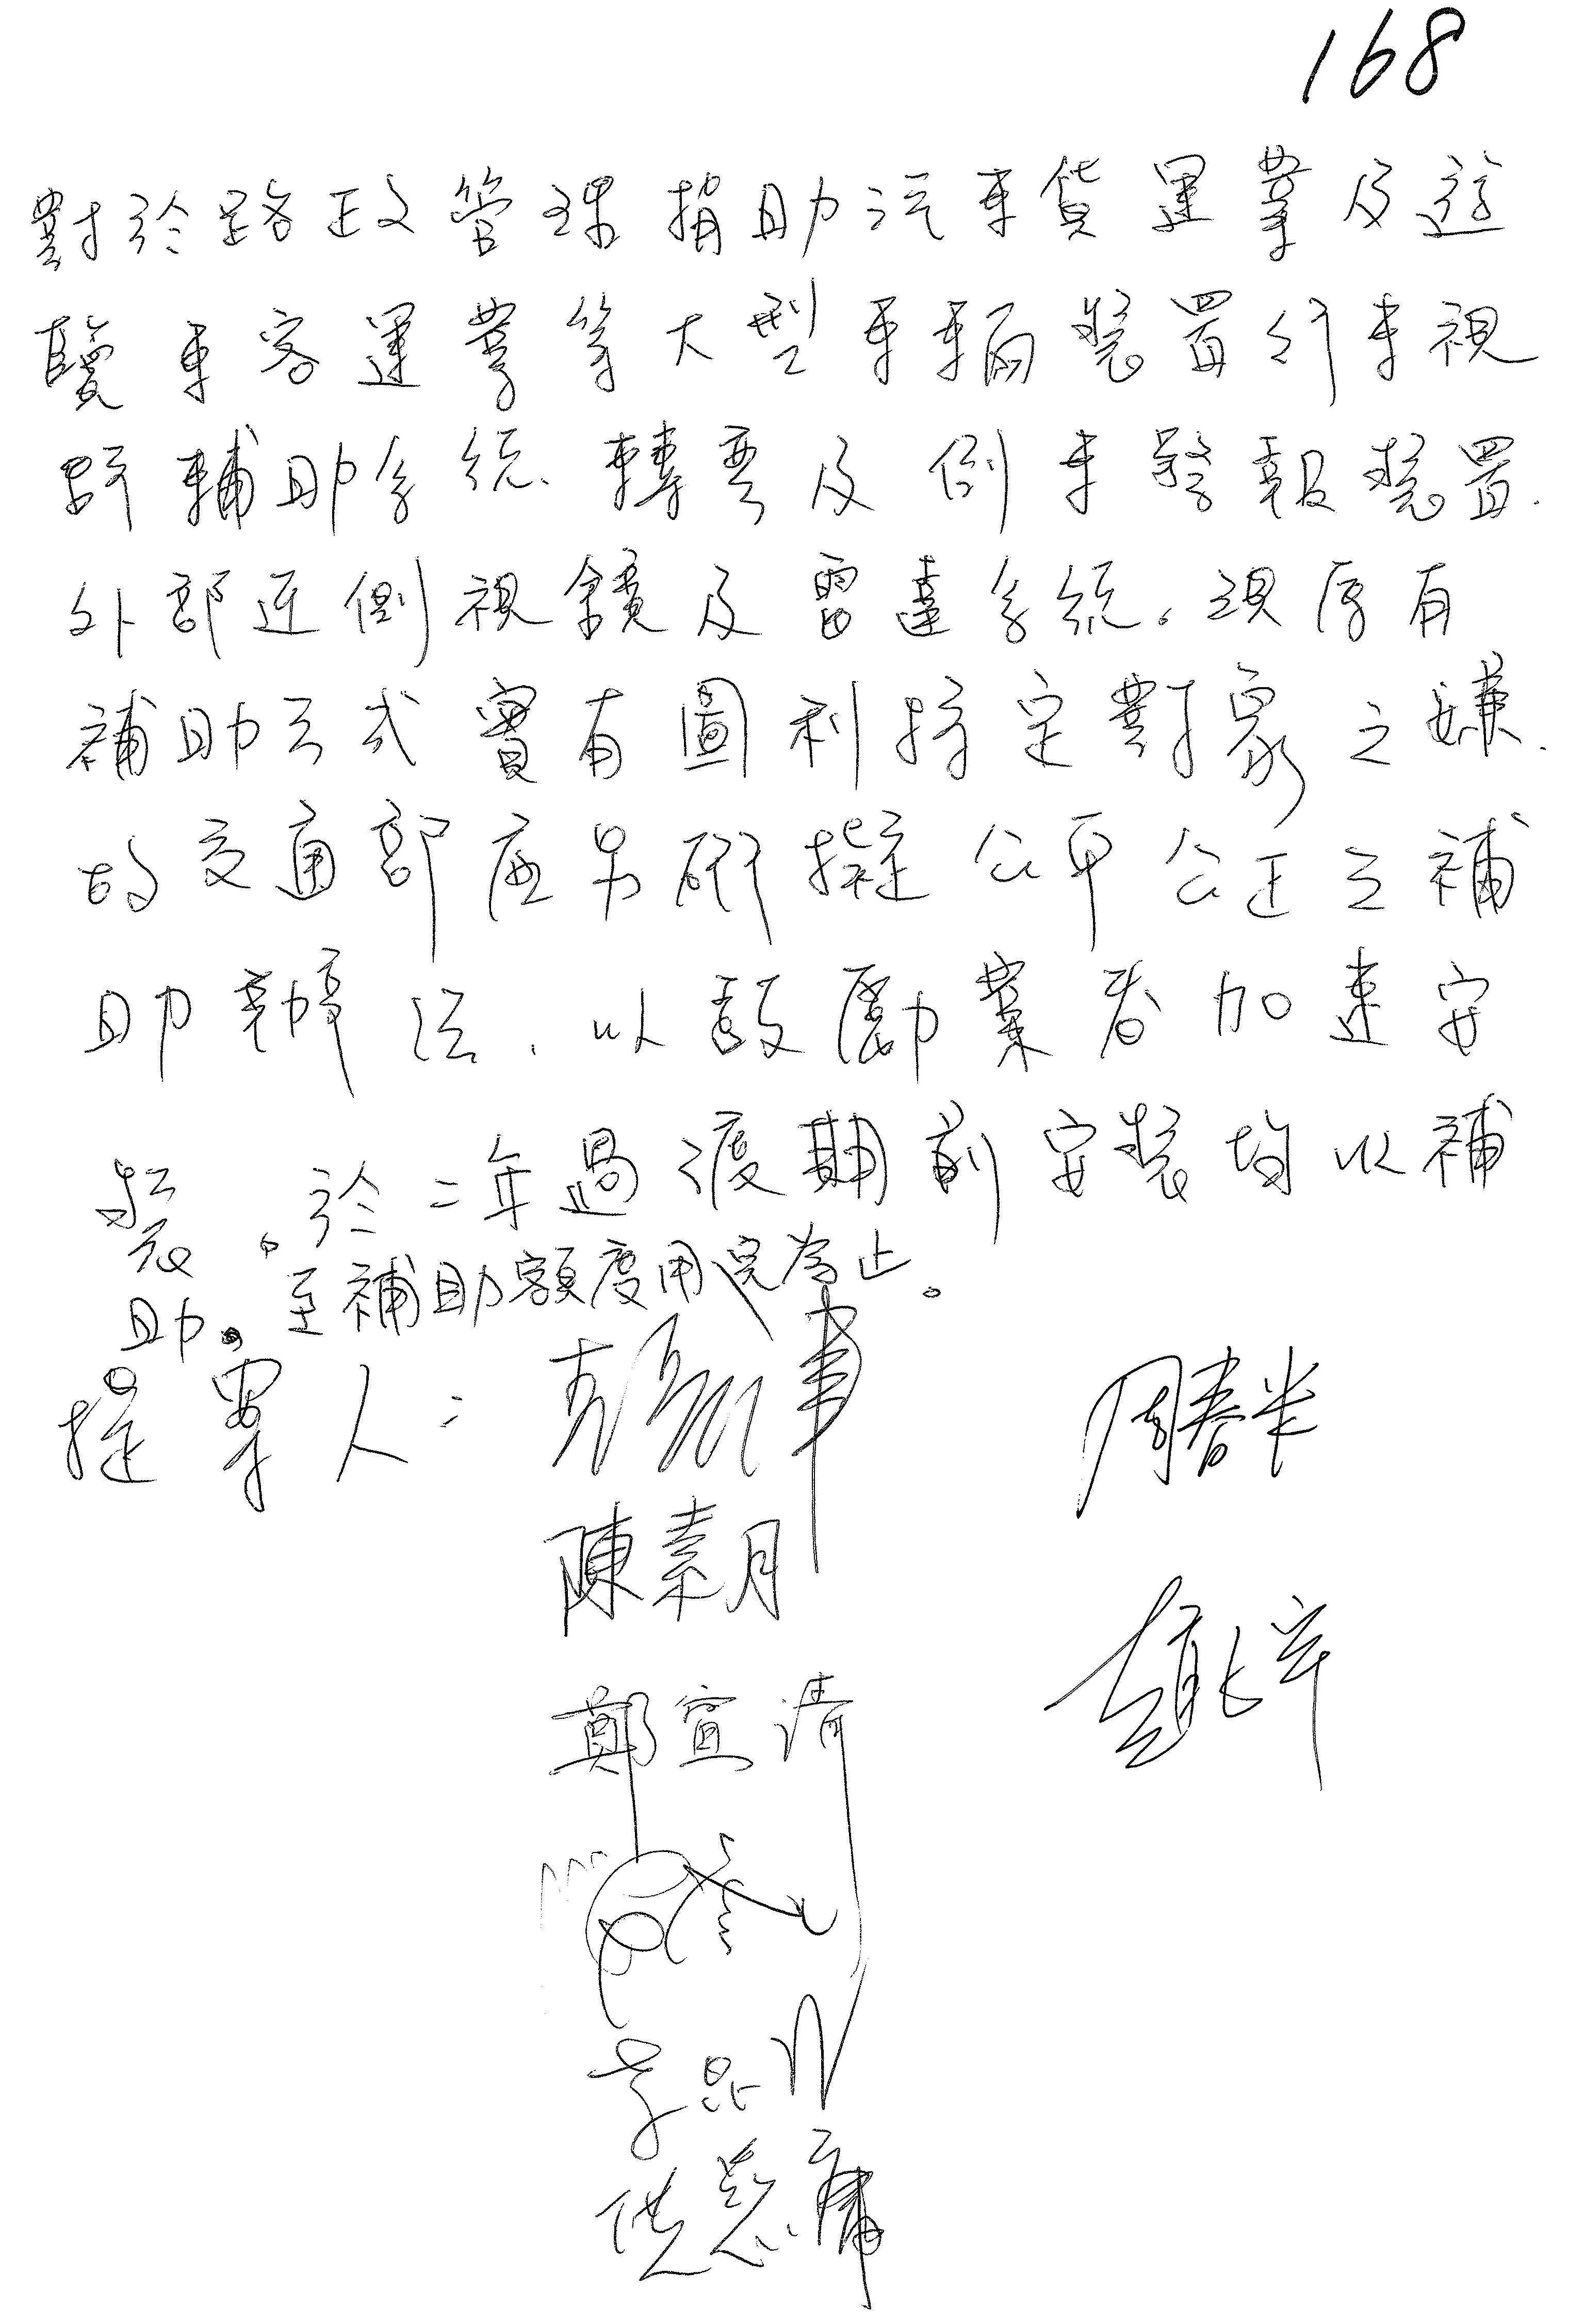 168
對於路政管理捐助汽車貨運業及遊
覽車客運業等大型車輛裝置行車視
野輔助系統、轉彎及倒車警報裝置、
外部近側視鏡及雷達系統。現存有
補助方式實有圖利特定對象之嫌、
故交通部應另研擬公平公正之補
助辦法、以鼓勵業者加速安
裝。於二年過渡期前安裝均以補
助。至補助額度用完為止。
提案人:
周春米
陳素月
鄭宣清
洪慈庸